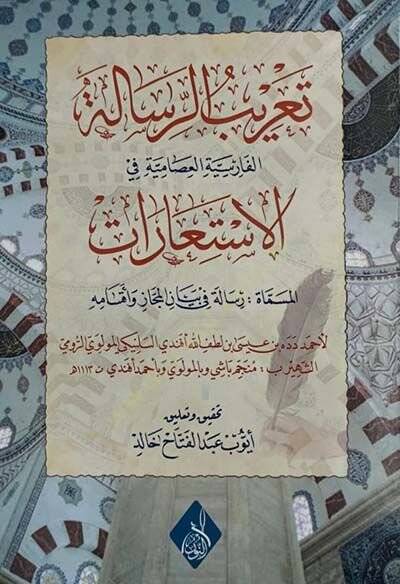 تعريب الرسالة
الفارسية العصامية في
الاستعارات
المسماة : رسالة في بيان المجاز وأقسامه
لأحمد دده بن عيسى بن لطف الله أفندي السلانيكي المولوي الرومي
الشهير ب : منجم باشي وبالمولوي وبأحمد أفندي ت ١١١٣هـ
تحقيق وتعليق
أيوب عبد الفتاح خالد